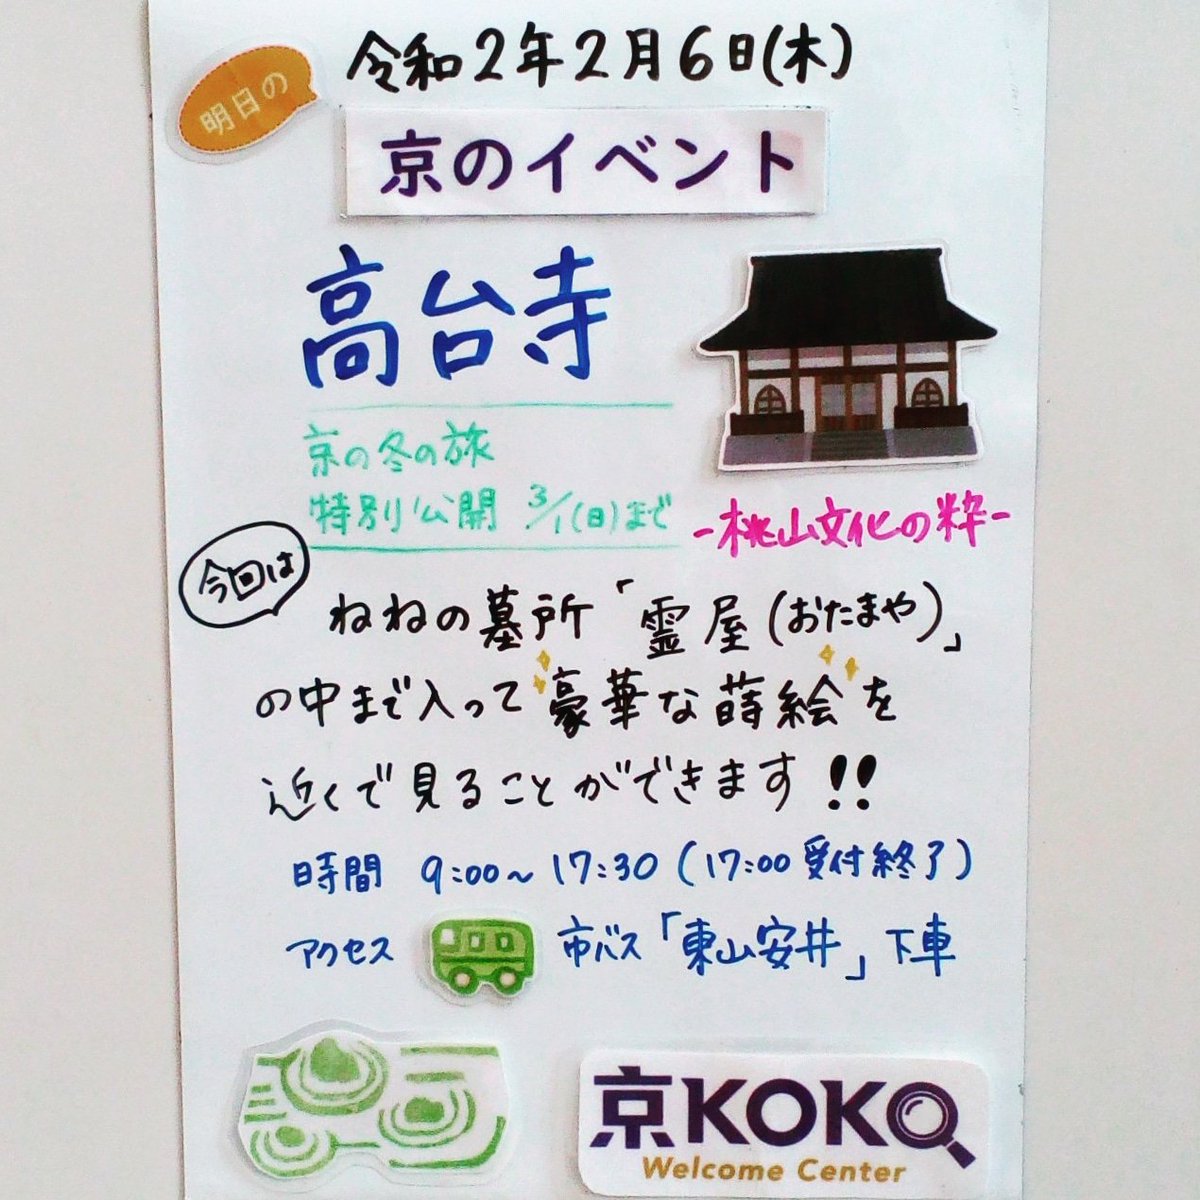 令和2年2月6日(木)
明日の
京のイベント
高台寺
京の冬の旅
特別公開 3/1(日)まで
-桃山文化の粋-
今回は
ねねの墓所「霊屋(おたまや)」
の中まで入って豪華な蒔絵を
近くで見ることができます!!
時間 9:00~17:30(17:00受付終了)
アクセス 市バス「東山安井」下車
京KOKO
Welcome Center